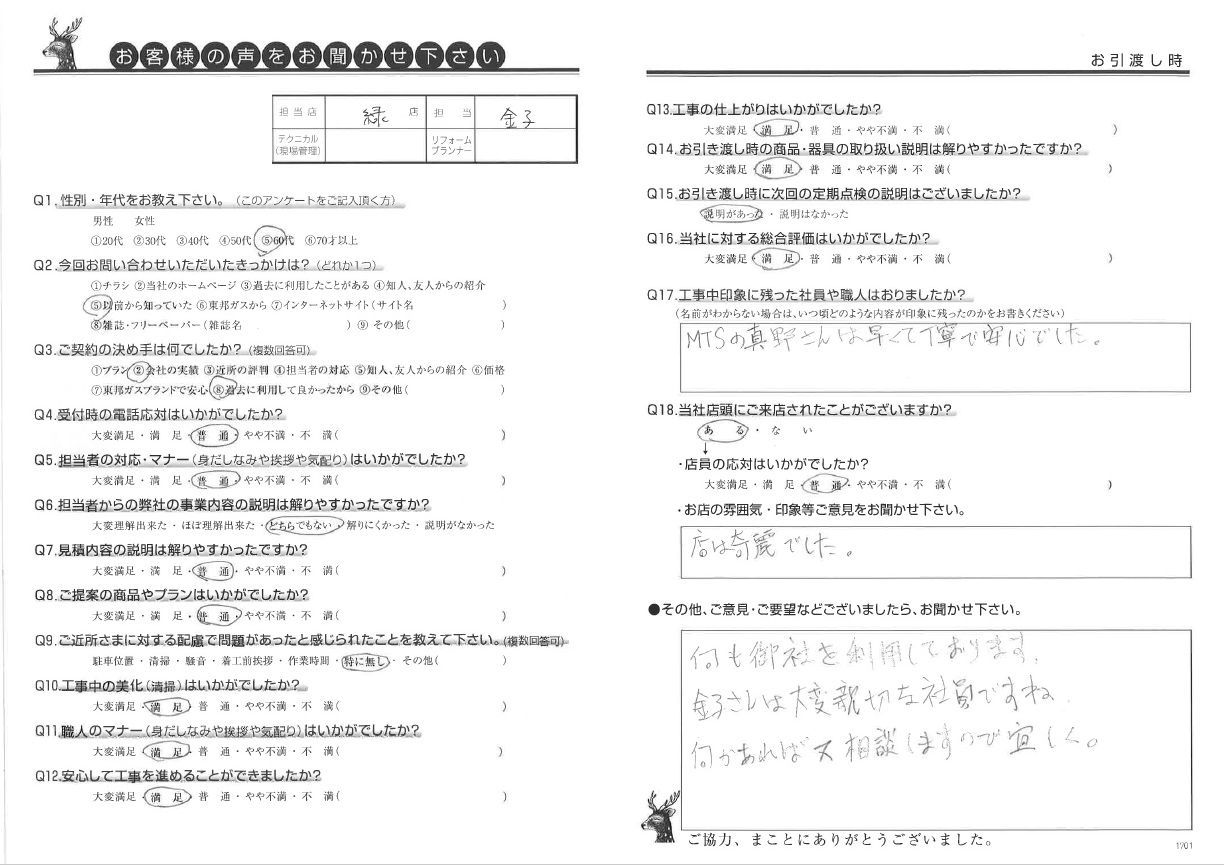 お客様の声をお聞かせ下さい
担当店 緑 店 担当 金子
テクニカル(現場管理) リフォームプランナー
Q1.性別・年代をお教え下さい。(このアンケートをご記入頂く方)
男性 女性
①20代 ②30代 ③40代 ④50代 ⑤60代 ⑥70才以上
Q2.今回お問い合わせいただいたきっかけは?(どれか1つ)
①チラシ ②当社のホームページ ③過去に利用したことがある ④知人、友人からの紹介
⑤以前から知っていた ⑥東邦ガスから ⑦インターネットサイト(サイト名 )
⑧雑誌・フリーペーパー(雑誌名 ) ⑨その他( )
Q3.ご契約の決め手は何でしたか?(複数回答可)
①プラン ②会社の実績 ③近所の評判 ④担当者の対応 ⑤知人、友人からの紹介 ⑥価格
⑦東邦ガスブランドで安心 ⑧過去に利用して良かったから ⑨その他( )
Q4.受付時の電話応対はいかがでしたか?
大変満足・満 足・普 通・やや不満・不 満( )
Q5.担当者の対応・マナー(身だしなみや挨拶や気配り)はいかがでしたか?
大変満足・満 足・普 通・やや不満・不 満( )
Q6.担当者からの弊社の事業内容の説明は解りやすかったですか?
大変理解出来た・ほぼ理解出来た・どちらでもない・解りにくかった・説明がなかった
Q7.見積内容の説明は解りやすかったですか?
大変満足・満 足・普 通・やや不満・不 満( )
Q8.ご提案の商品やプランはいかがでしたか?
大変満足・満 足・普 通・やや不満・不 満( )
Q9.ご近所さまに対する配慮で問題があったと感じられたことを教えて下さい。(複数回答可)
駐車位置・清掃・騒音・着工前挨拶・作業時間・特に無し・その他( )
Q10.工事中の美化(清掃)はいかがでしたか?
大変満足・満 足・普 通・やや不満・不 満( )
Q11.職人のマナー(身だしなみや挨拶や気配り)はいかがでしたか?
大変満足・満 足・普 通・やや不満・不 満( )
Q12.安心して工事を進めることができましたか?
大変満足・満 足・普 通・やや不満・不 満( )
お引渡し時
Q13.工事の仕上がりはいかがでしたか?
大変満足・満 足・普 通・やや不満・不 満( )
Q14.お引き渡し時の商品・器具の取り扱い説明は解りやすかったですか?
大変満足・満 足・普 通・やや不満・不 満( )
Q15.お引き渡し時に次回の定期点検の説明はございましたか?
説明があった・説明はなかった
Q16.当社に対する総合評価はいかがでしたか?
大変満足・満 足・普 通・やや不満・不 満( )
Q17.工事中印象に残った社員や職人はおりましたか?
(名前がわからない場合は、いつ頃どのような内容が印象に残ったのかをお書きください)
MTSの真野さんは早くて丁寧で安心でした。
Q18.当社店頭にご来店されたことがございますか?
あ る・な い
・店員の応対はいかがでしたか?
大変満足・満 足・普 通・やや不満・不 満( )
・お店の雰囲気・印象等ご意見をお聞かせ下さい。
店は奇麗でした。
●その他、ご意見・ご要望などございましたら、お聞かせ下さい。
何も御社を利用しております。
金子さんは大変親切な社員ですね。
何かあれば又相談しますので宜しく。
ご協力、まことにありがとうございました。
17/01